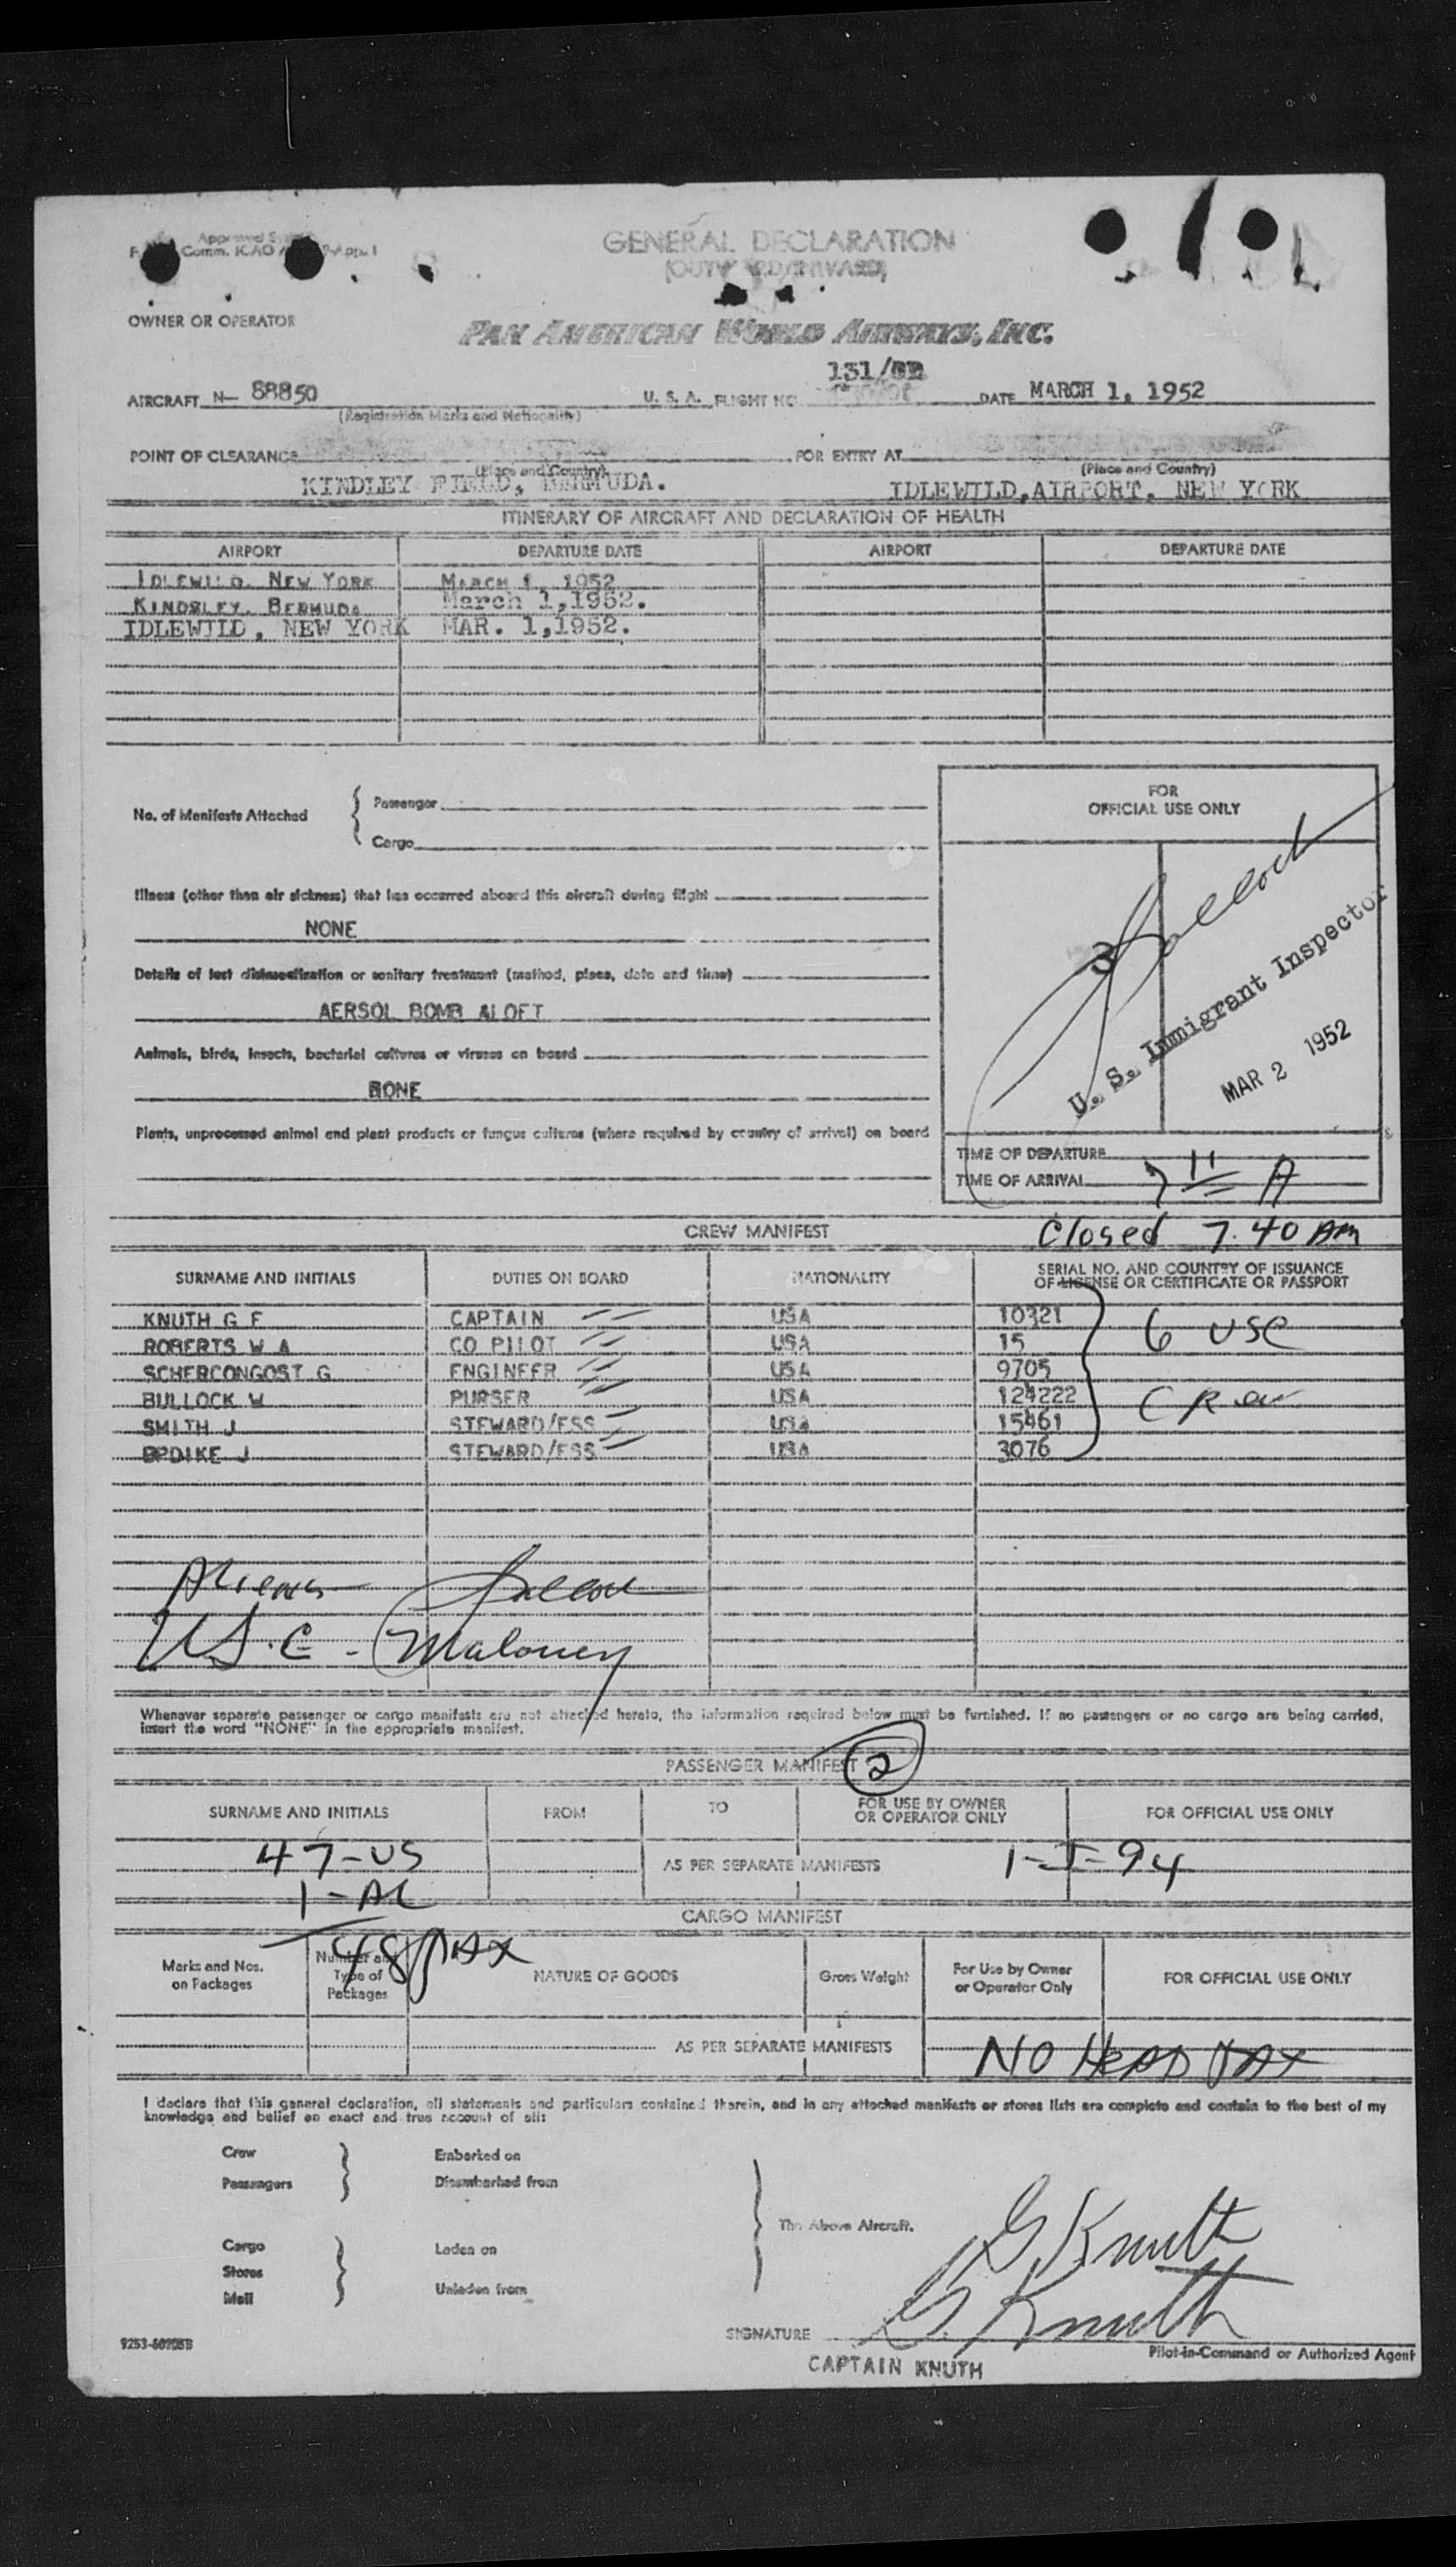 Comm. ICAO
GENERAL DECLARATION
OWNER OR OPERATOR
PAN AMERICAN WORLD AIRWAYS, INC.
131/
AIRCRAFT N- 88850 U. S. A. FLIGHT NO DATE MARCH 1, 1952
(Registration Marks and Nationality)
POINT OF CLEARANCE FOR ENTRY AT
(Place and Country) (Place and Country)
KINDLEY FIELD, BERMUDA. IDLEWILD, AIRPORT, NEW YORK
ITINERARY OF AIRCRAFT AND DECLARATION OF HEALTH
AIRPORT DEPARTURE DATE AIRPORT DEPARTURE DATE
IDLEWILD, NEW YORK MARCH 1, 1952
KINDSLEY, BERMUDA March 1,1952.
IDLEWILD, NEW YORK MAR. 1,1952.
FOR
OFFICIAL USE ONLY
No. of Manifests Attached { Passenger
Cargo
Illness (other than air sickness) that has occurred aboard this aircraft during flight
NONE
Details of last disinsectization or sanitary treatment (method, place, date and time)
AERSOL BOMB ALOFT
Animals, birds, insects, bacterial cultures or viruses on board
BONE
Plants, unprocessed animal and plant products or fungus cultures (where required by country of arrival) on board
U. S. Immigrant Inspector
MAR 2 1952
TIME OF DEPARTURE
TIME OF ARRIVAL 7 11 A
CREW MANIFEST Closed 7.40 AM
SURNAME AND INITIALS DUTIES ON BOARD NATIONALITY SERIAL NO. AND COUNTRY OF ISSUANCE
OF LICENSE OR CERTIFICATE OR PASSPORT
KNUTH G F CAPTAIN USA 10321
ROBERTS W A CO PILOT USA 15
SCHERCONGOST G ENGINEER USA 9705
BULLOCK W PURSER USA 124222
SMITH J STEWARD/ESS USA 15461
J STEWARD/ESS USA 3076
6 USC
Crew
Aliens
U.S.C - Maloney
Whenever separate passenger or cargo manifests are not attached hereto, the information required below must be furnished. If no passengers or no cargo are being carried,
insert the word "NONE" in the appropriate manifest.
PASSENGER MANIFEST 2
SURNAME AND INITIALS FROM TO FOR USE BY OWNER
OR OPERATOR ONLY FOR OFFICIAL USE ONLY
47-US AS PER SEPARATE MANIFESTS 1-I-94
1-AL
CARGO MANIFEST
48 PAX
Marks and Nos.
on Packages Number and
Type of
Packages NATURE OF GOODS Gross Weight For Use by Owner
or Operator Only FOR OFFICIAL USE ONLY
AS PER SEPARATE MANIFESTS NO HEAD TAX
I declare that this general declaration, all statements and particulars contained therein, and in any attached manifests or stores lists are complete and contain to the best of my
knowledge and belief an exact and true account of all:
Crew Embarked on
Passengers Disembarked from
The Above Aircraft.
Cargo Laden on
Stores
Mail Unladen from
G. Knuth
G. Knuth
SIGNATURE
Pilot-in-Command or Authorized Agent
CAPTAIN KNUTH